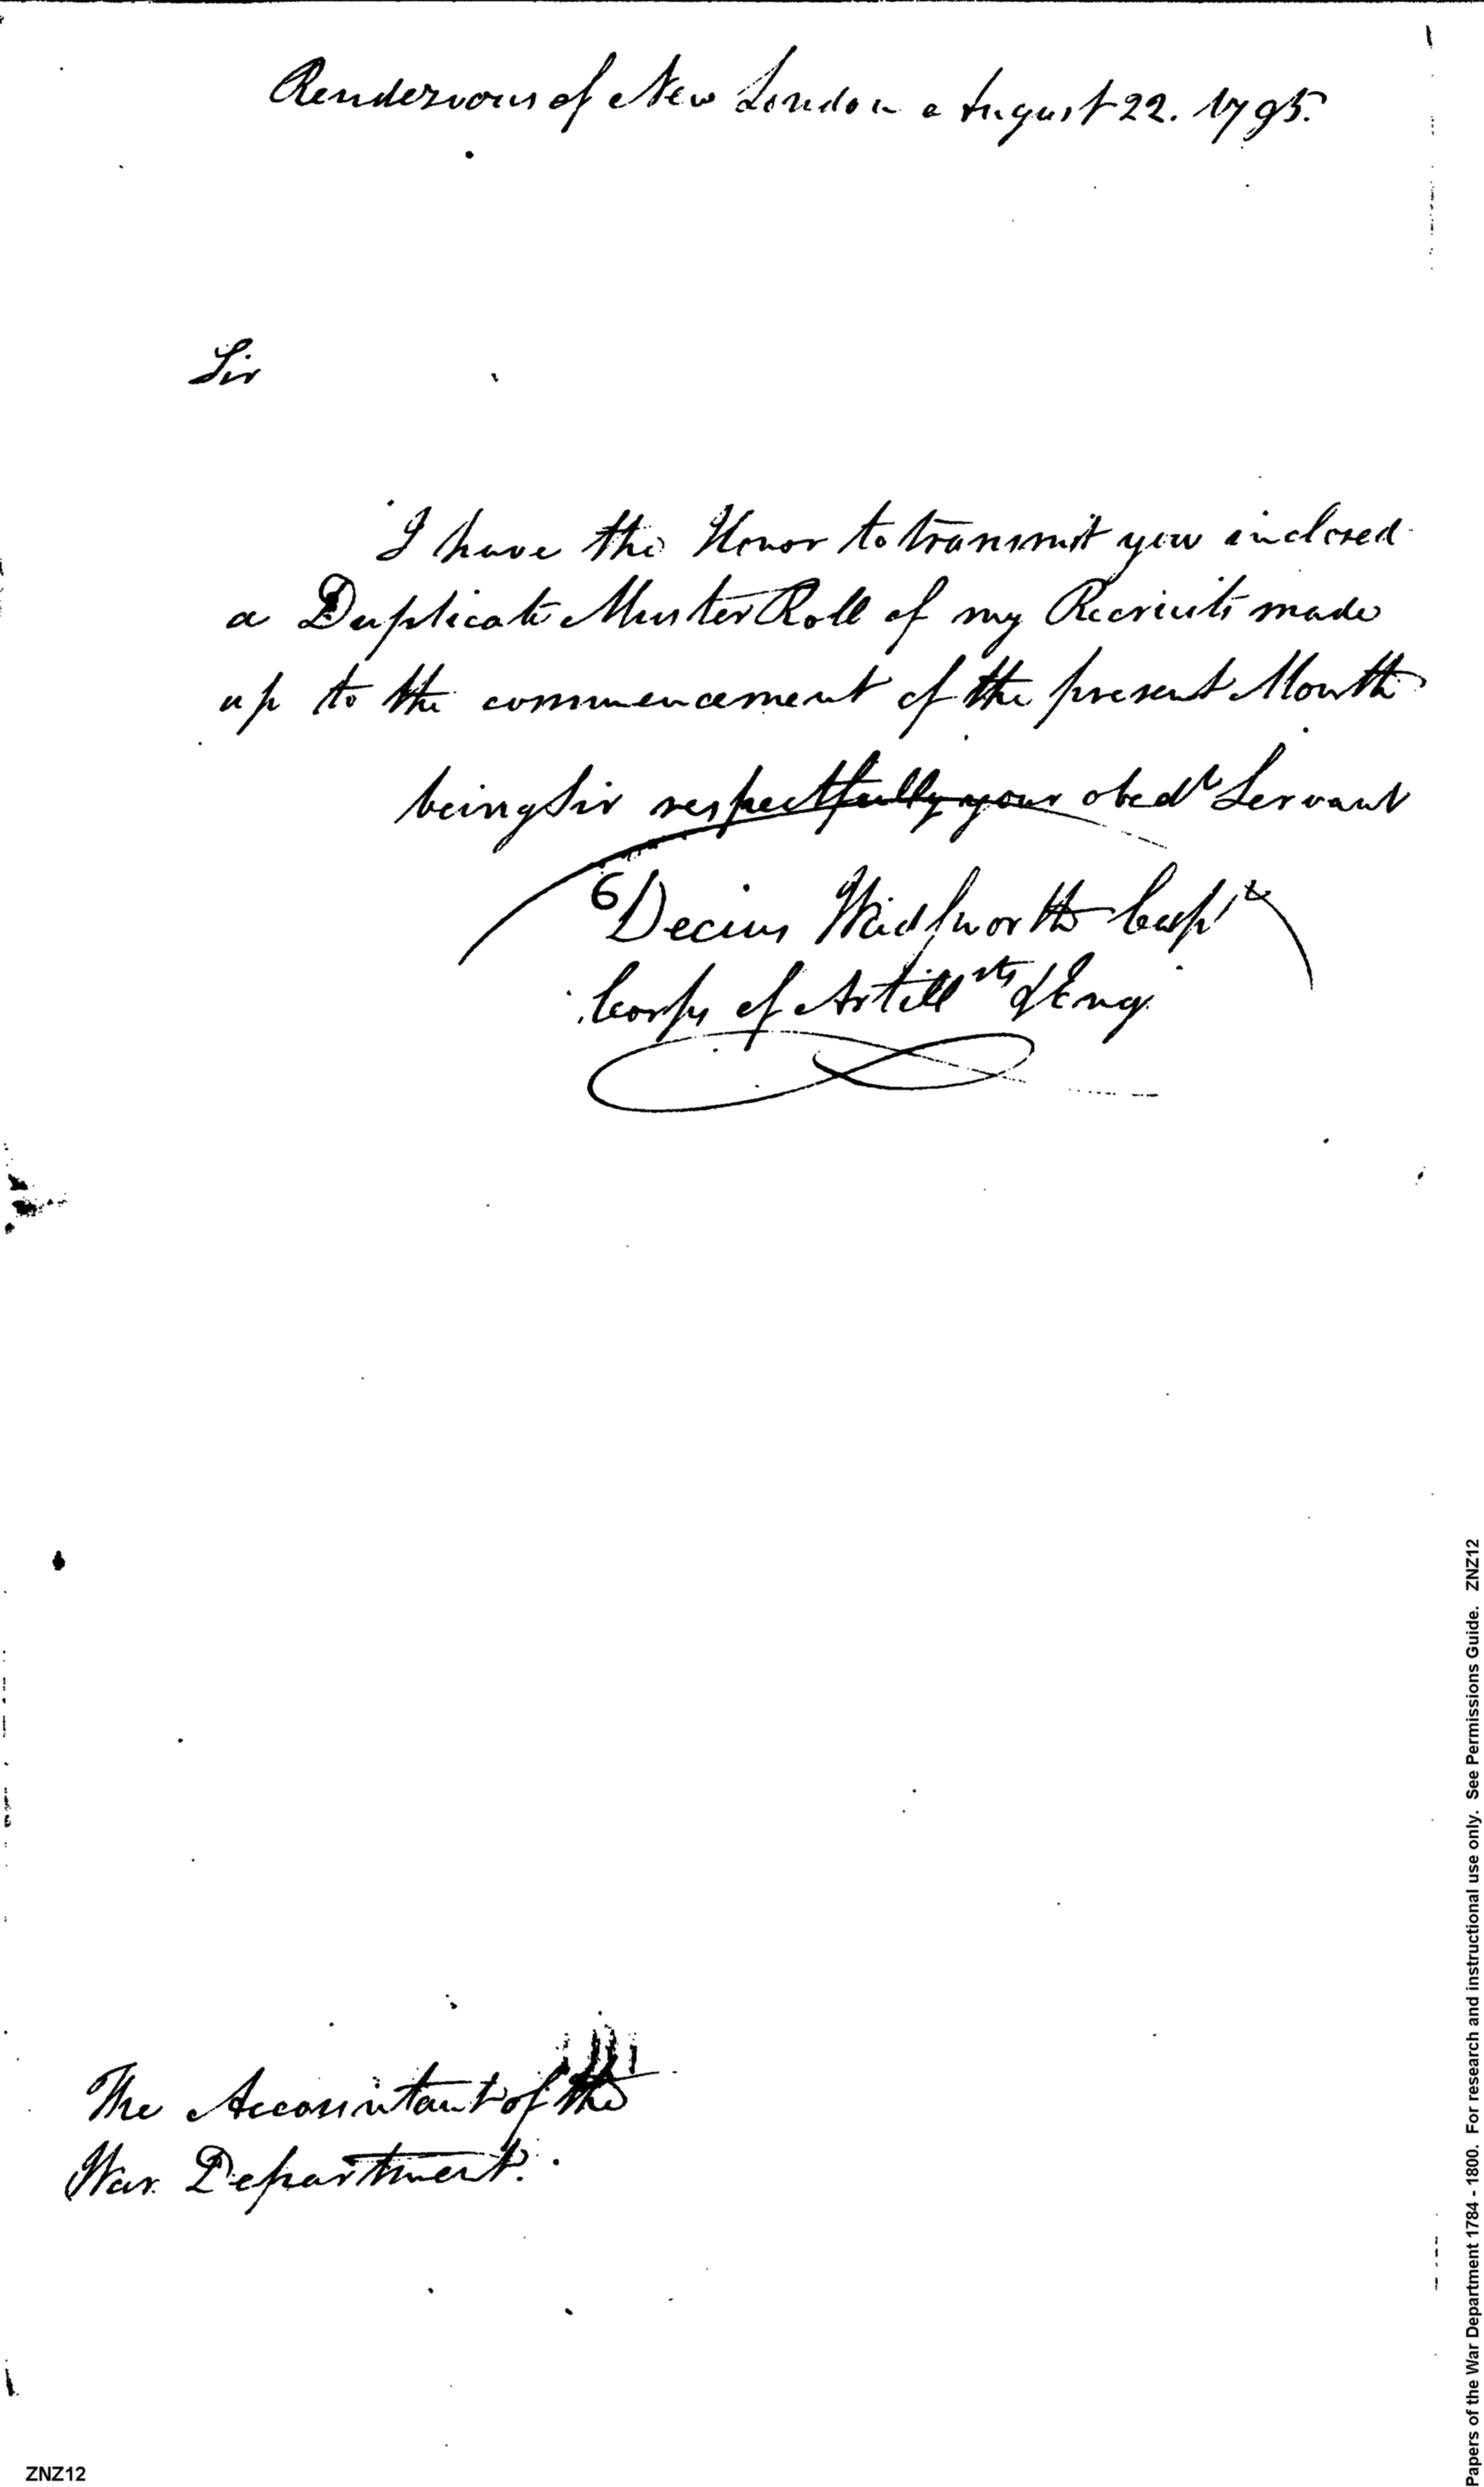 Rendezvous of New London August 22. 1795.
Sir
I have the Honor to transmit you inclosed
a Duplicate Muster Roll of my Recruits made
up to the commencement of the present Month
being Sir respectfully your obedt Servant
Decius Wadsworth Capt
Corps of Artillsts & Eng
The Accountant of the
War Department.
ZNZ12
Papers of the War Department 1784 - 1800. For research and instructional use only. See Permissions Guide. ZNZ12